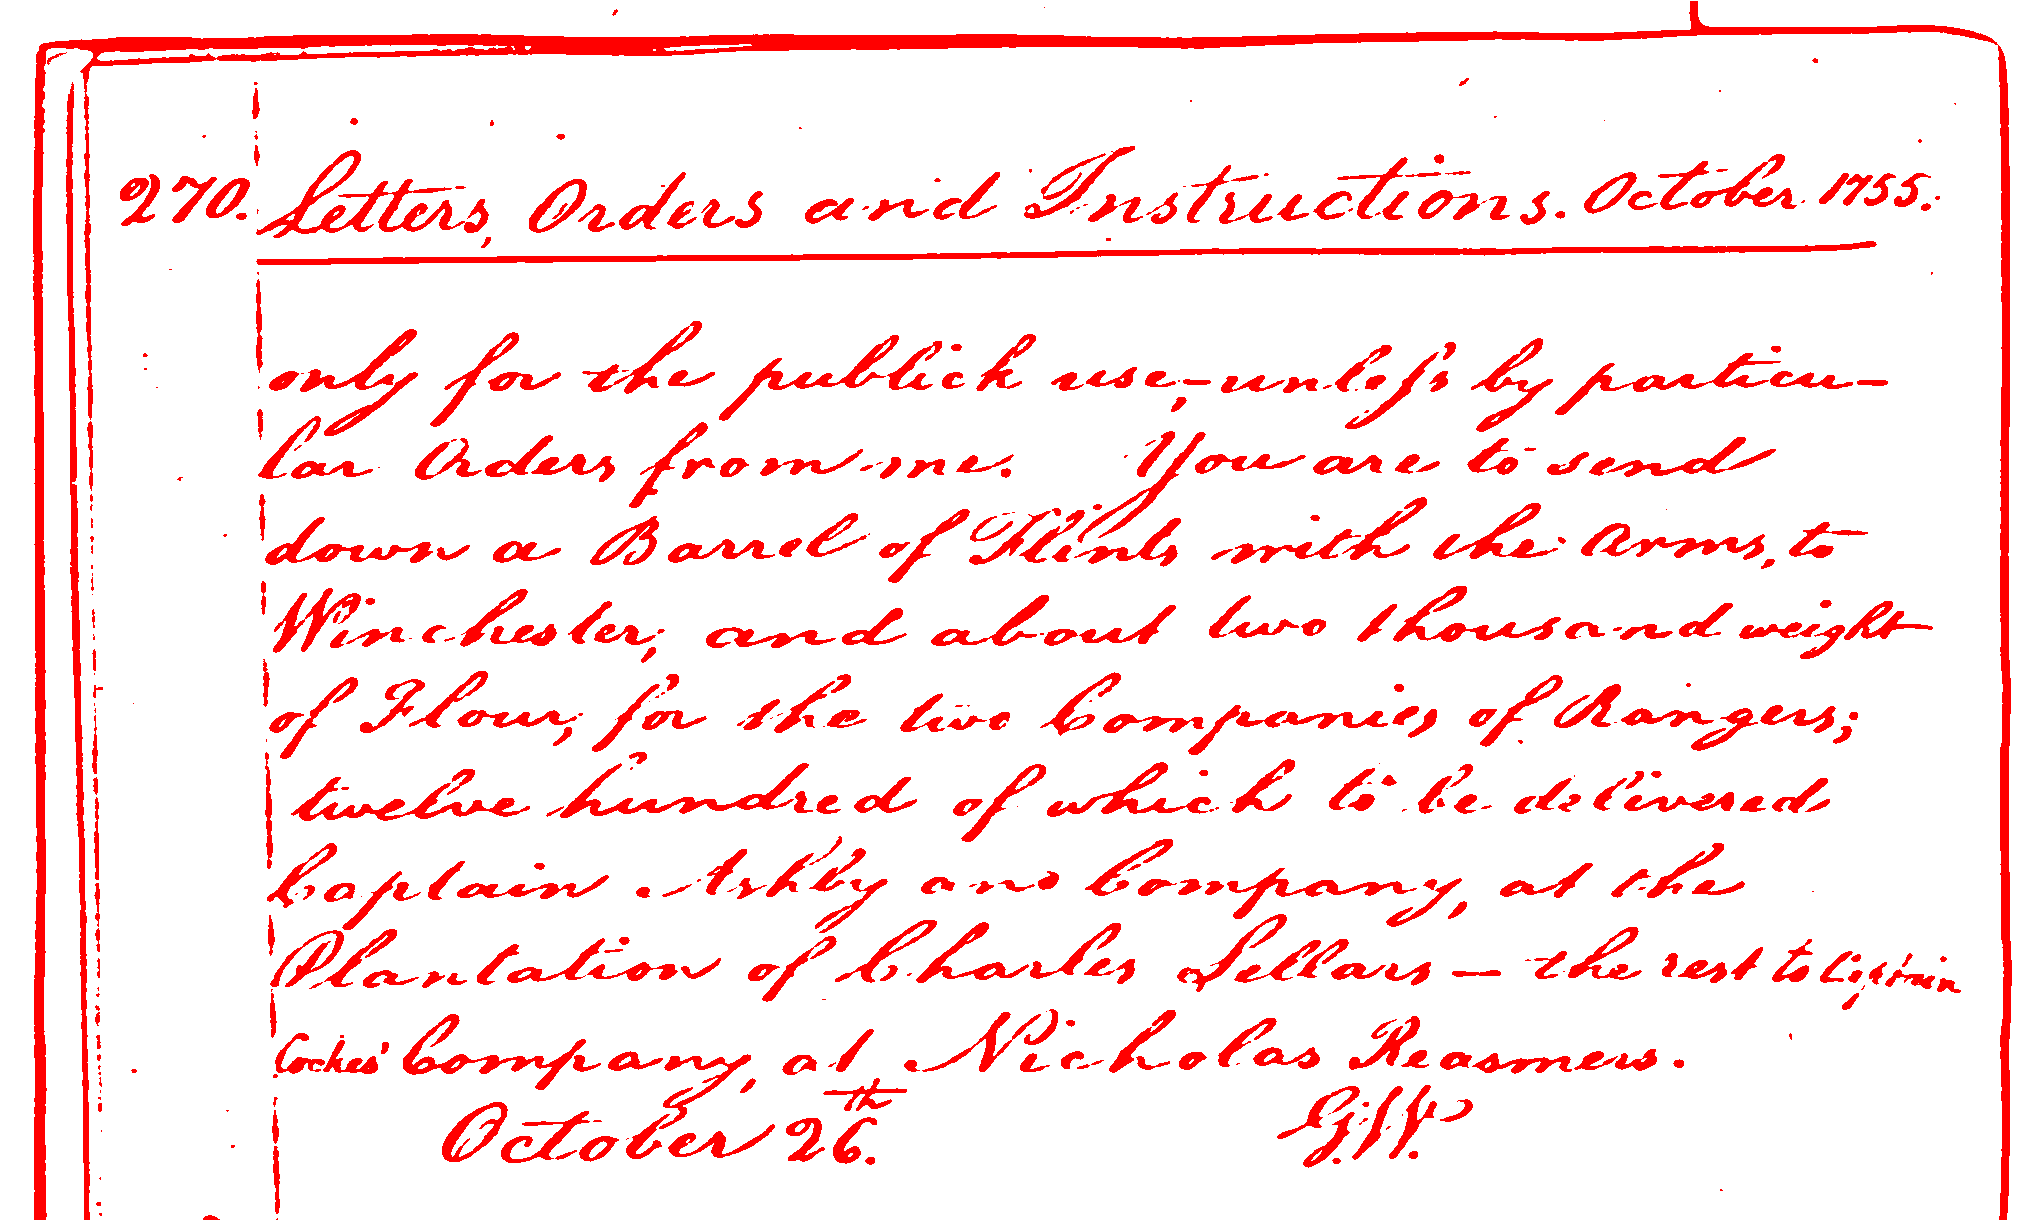 270. Letters, Orders and Instructions. October 1755.
only for the publick use,-unless by particu-
lar Orders from me. You are to send
down a Barrel of Flints with the Arms, to
Winchester; and about two thousand weight
of Flour, for the two Companies of Rangers;
twelve hundred of which to be delivered
Captain Ashby and Company, at the
Plantation of Charles Sellars - the rest to Captain
Cockes' Company, at Nicholas Reasmers.
October 26th. G.W.